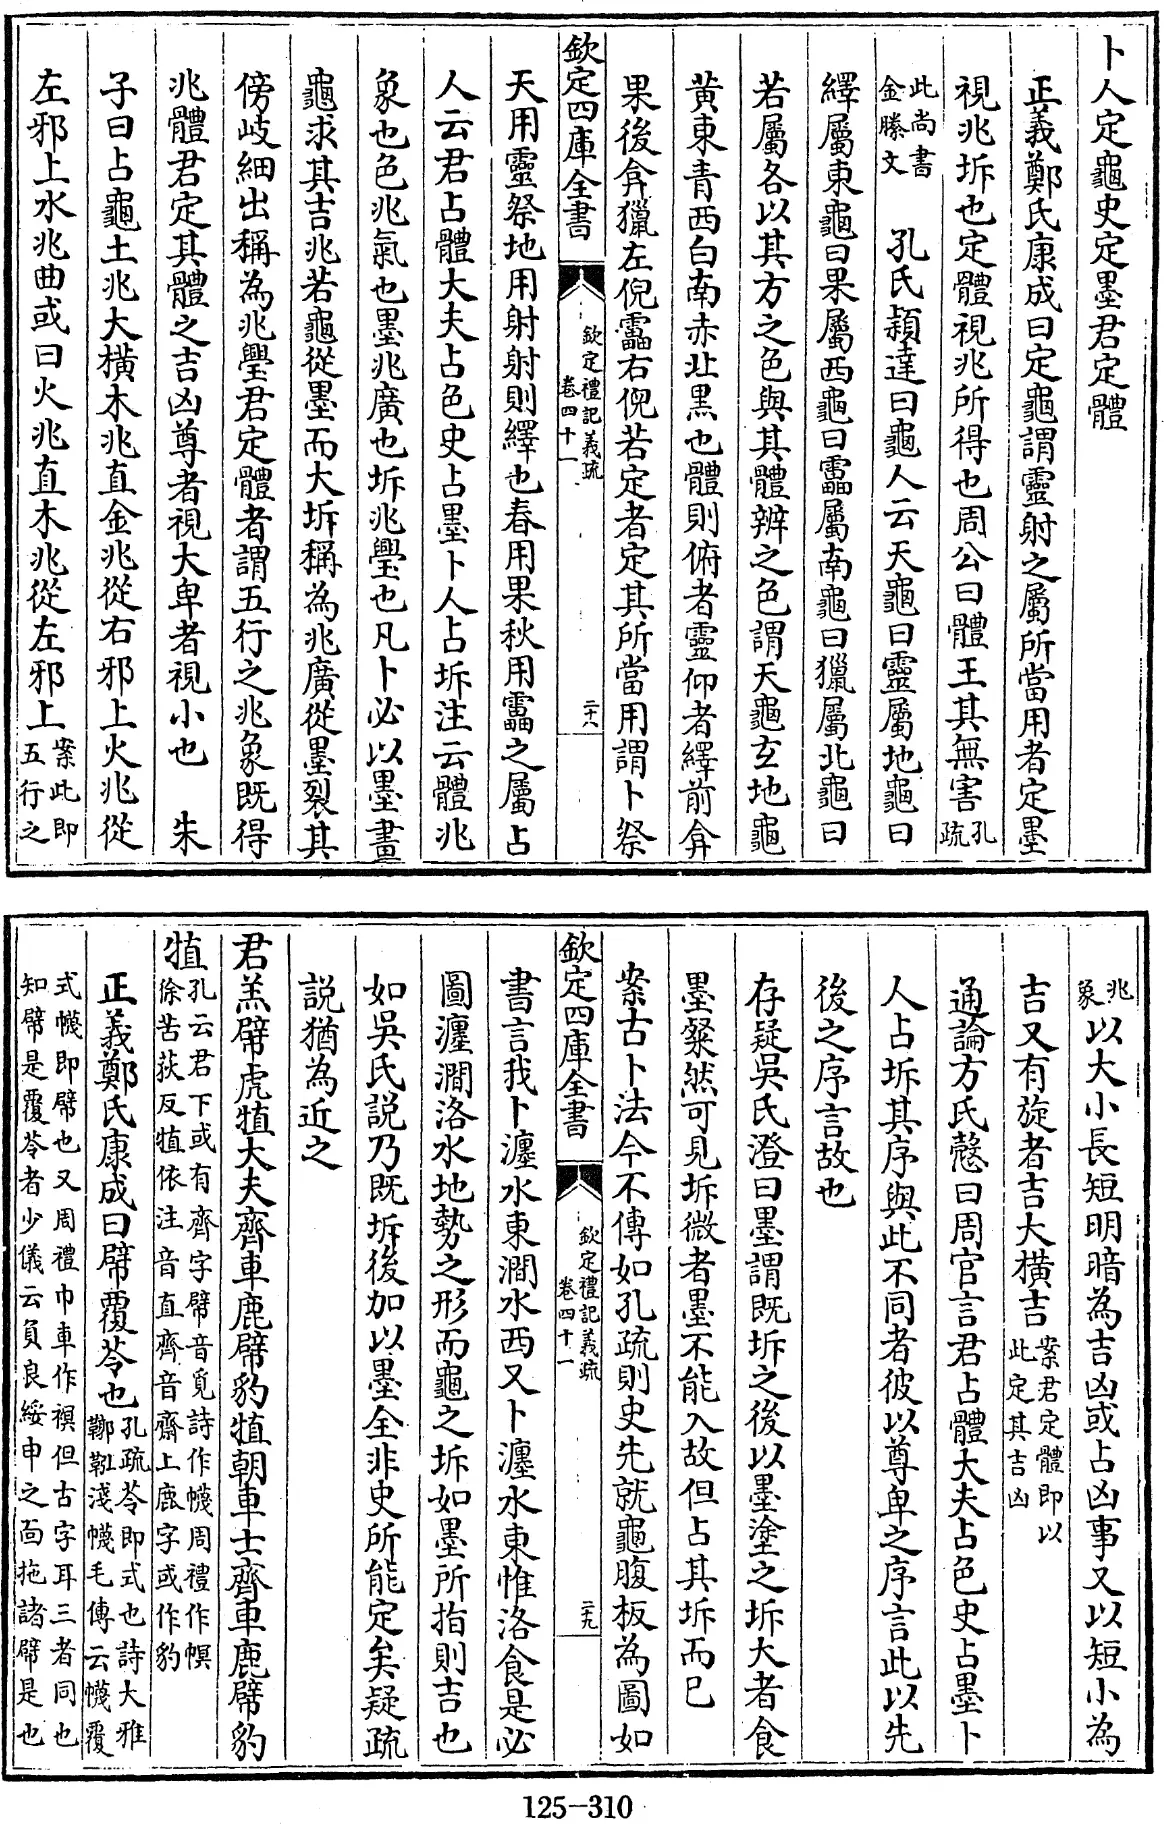 卜人定龜史定墨君定體
正義鄭氏康成曰定龜謂靈射之屬所當用者定墨
視兆坼也定體視兆所得也周公曰體王其無害孔疏
此尚書金縢文　孔氏穎達曰龜人云天龜曰靈屬地龜曰
繹屬東龜曰果屬西龜曰靁屬南龜曰獵屬北龜曰
若屬各以其方之色與其體辨之色謂天龜玄地龜
黄東青西白南赤北黒也體則俯者靈仰者繹前弇
果後弇獵左倪靁右倪若定者定其所當用謂卜祭
欽定四庫全書　欽定禮記義疏卷四十一　二十八
天用靈祭地用射射則繹也春用果秋用靁之屬占
人云君占體大夫占色史占墨卜人占坼注云體兆
象也色兆氣也墨兆廣也坼兆舋也凡卜必以墨畫
龜求其吉兆若龜從墨而大坼稱為兆廣從墨裂其
傍岐細出稱為兆舋君定體者謂五行之兆象既得
兆體君定其體之吉凶尊者視大卑者視小也　朱
子曰占龜土兆大橫木兆直金兆從右邪上火兆從
左邪上水兆曲或曰火兆直木兆從左邪上案此即五行之
兆象以大小長短明暗為吉凶或占凶事又以短小為
吉又有旋者吉大橫吉案君定體即以此定其吉凶
通論方氏慤曰周官言君占體大夫占色史占墨卜
人占坼其序與此不同者彼以尊卑之序言此以先
後之序言故也
存疑吳氏澄曰墨謂既坼之後以墨塗之坼大者食
墨粲然可見坼微者墨不能入故但占其坼而已
案古卜法今不傳如孔疏則史先就龜腹板為圖如
欽定四庫全書　欽定禮記義疏卷四十一　二十九
書言我卜瀍水東澗水西又卜瀍水東惟洛食是必
圖瀍澗洛水地勢之形而龜之坼如墨所指則吉也
如吳氏說乃既坼後加以墨全非史所能定矣疑疏
說猶為近之
君羔幦虎犆大夫齊車鹿幦豹犆朝車士齊車鹿幦豹
犆孔云君下或有齊字幦音覓詩作幭周禮作幎徐苦荻反犆依注音直齊音齋上鹿字或作豹
正義鄭氏康成曰幦覆苓也孔疏苓即式也詩大雅鞹鞃淺幭毛傳云幭覆
式幭即幦也又周禮巾車作䙆但古字耳三者同也
知幦是覆苓者少儀云負良綏申之面拖諸幦是也
125-310